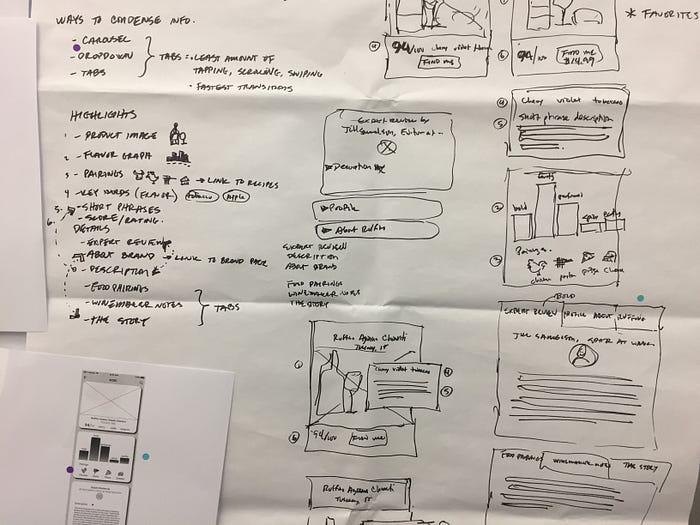 WAYS TO CONDENSE INFO.
- CAROUSEL
- DROPDOWN
- TABS
TABS = • LEAST AMOUNT OF
TAPPING, SCROLLING, SWIPING
• FASTEST TRANSITIONS
HIGHLIGHTS
1 - PRODUCT IMAGE
2 - FLAVOR GRAPH
3 - PAIRINGS → LINK TO RECIPES
4 - KEY WORDS (FLAVOR) tobacco Apple
5 - SHORT PHRASES
6 - SCORE/RATING
DETAILS
- EXPERT REVIEW
- ABOUT BRAND → LINK TO BRAND PAGE
- DESCRIPTION
- FOOD PAIRINGS
- WINEMAKER NOTES
- THE STORY
TABS
EXPERT REVIEW
DESCRIPTION
ABOUT BRAND
FOOD PAIRINGS
WINEMAKER NOTES
THE STORY
94/100 Cherry violet tobacco
Find me
94/100 Find me
$14.99
* FAVORITES
Expert Review by
Description
Profile
About Ruffino
4 Cherry violet tobacco
5 Short phrase description
2
bold
Pairings
3
1
Tuscany, IT
Cherry violet tobacco
4
5
6
94/100 Find me
BOLD
EXPERT REVIEW PROFILE ABOUT RUFFINO
FOOD PAIRINGS WINEMAKER NOTES THE STORY
Tuscany, IT